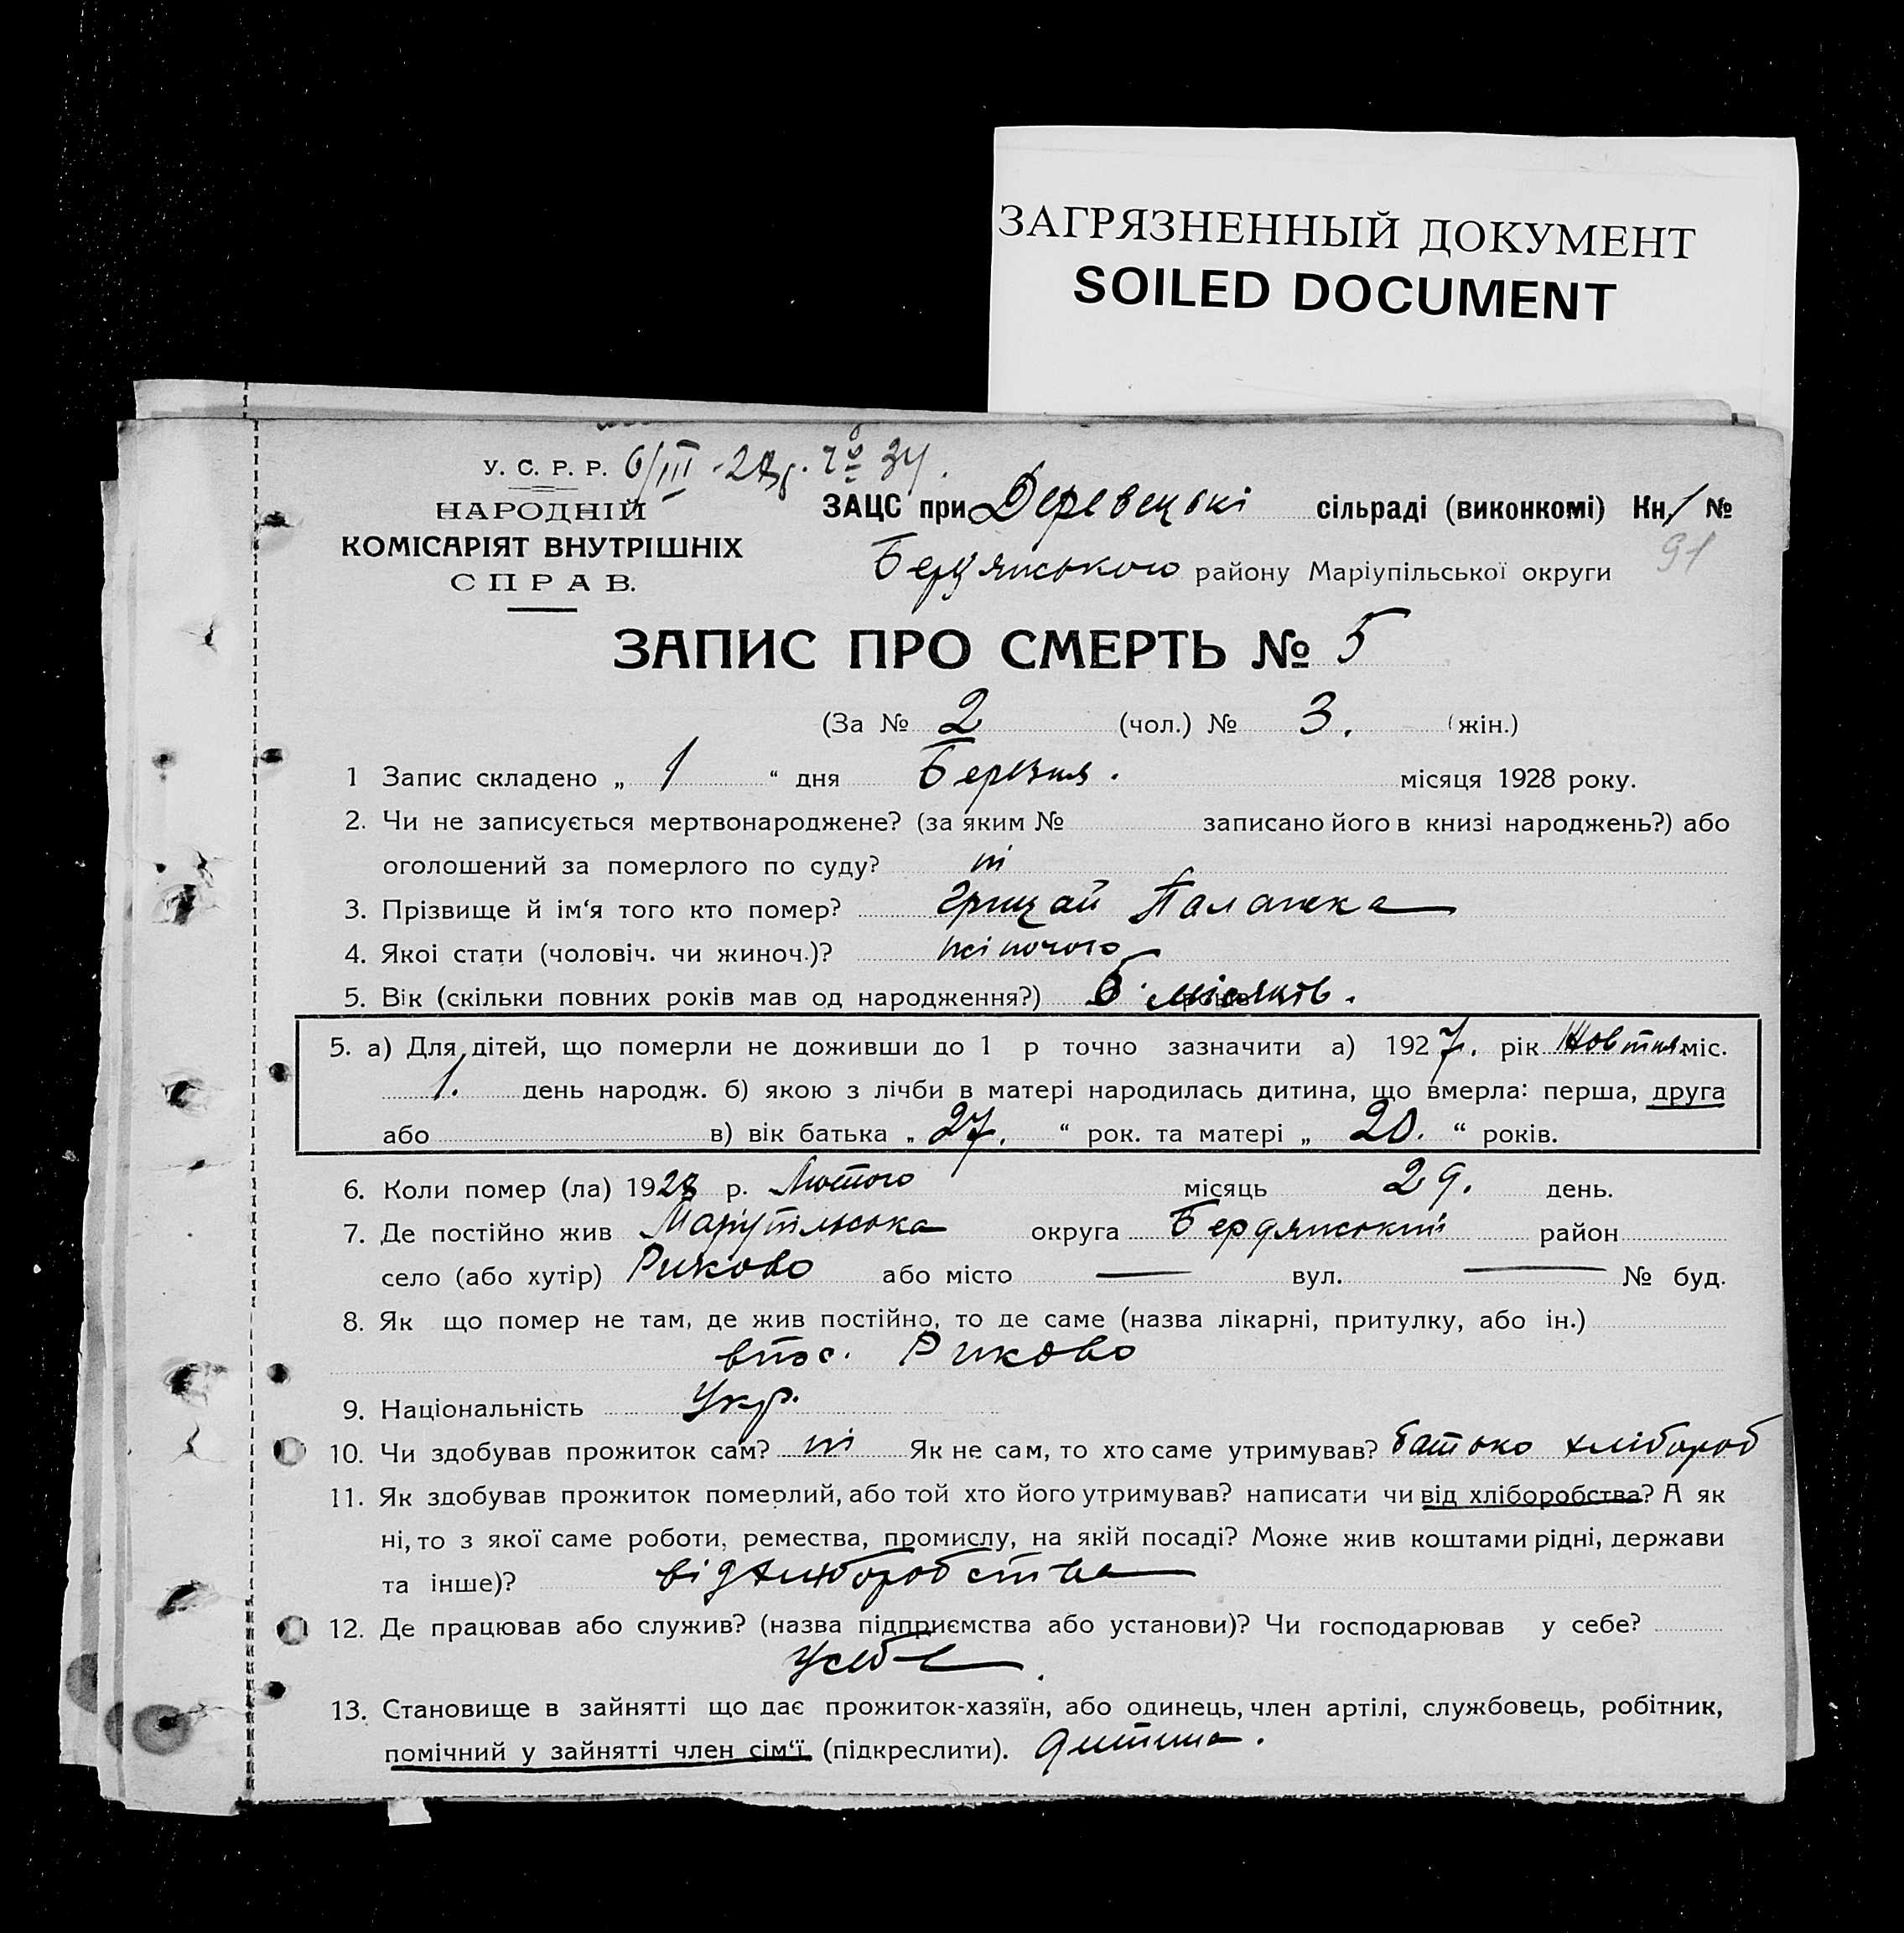 ЗАГРЯЗНЕННЫЙ ДОКУМЕНТ
SOILED DOCUMENT
У. С. Р. Р. 6/III
НАРОДНІЙ
КОМІСАРІЯТ ВНУТРІШНІХ
СПРАВ.
ЗАЦС при Деревецькі сільраді (виконкомі) Кн. 1 №
91
Бердянського району Маріупільської округи
ЗАПИС ПРО СМЕРТЬ № 5
(За № 2 (чол.) № 3. (жін.)
1 Запис складено „ 1 “ дня Березня. місяця 1928 року.
2. Чи не записується мертвонароджене? (за яким № записано його в книзі народжень?) або
оголошений за померлого по суду? ні
3. Прізвище й ім‘я того кто помер? Грицай Палажка
4. Якоі стати (чоловіч. чи жиноч.)? жіночого
5. Вік (скільки повних років мав од народження?) місяців.
5. а) Для дітей, що померли не доживши до 1 р точно зазначити а) 1927. рік Жовтня міс.
1. день народж. б) якою з лічби в матері народилась дитина, що вмерла: перша, друга
або в) вік батька „ 27. “ рок. та матері „ 20. “ років.
6. Коли помер (ла) 1928 р. Лютого місяць 29. день.
7. Де постійно жив Маріупільська округа Бердянський район
село (або хутір) Риково або місто — вул. — № буд.
8. Як що помер не там, де жив постійно, то де саме (назва лікарні, притулку, або ін.)
впос. Риково
9. Національність Укр.
10. Чи здобував прожиток сам? ні Як не сам, то хто саме утримував? батько хлібороб
11. Як здобував прожиток померлий, або той хто його утримував? написати чи від хліборобства? А як
ні, то з якої саме роботи, ремества, промислу, на якій посаді? Може жив коштами рідні, держави
та інше)? від хліборобства
12. Де працював або служив? (назва підприємства або установи)? Чи господарював у себе?
У себе.
13. Становище в зайнятті що дає прожиток-хазяїн, або одинець, член артілі, службовець, робітник,
помічний у зайнятті член сім‘ї (підкреслити). дитина.